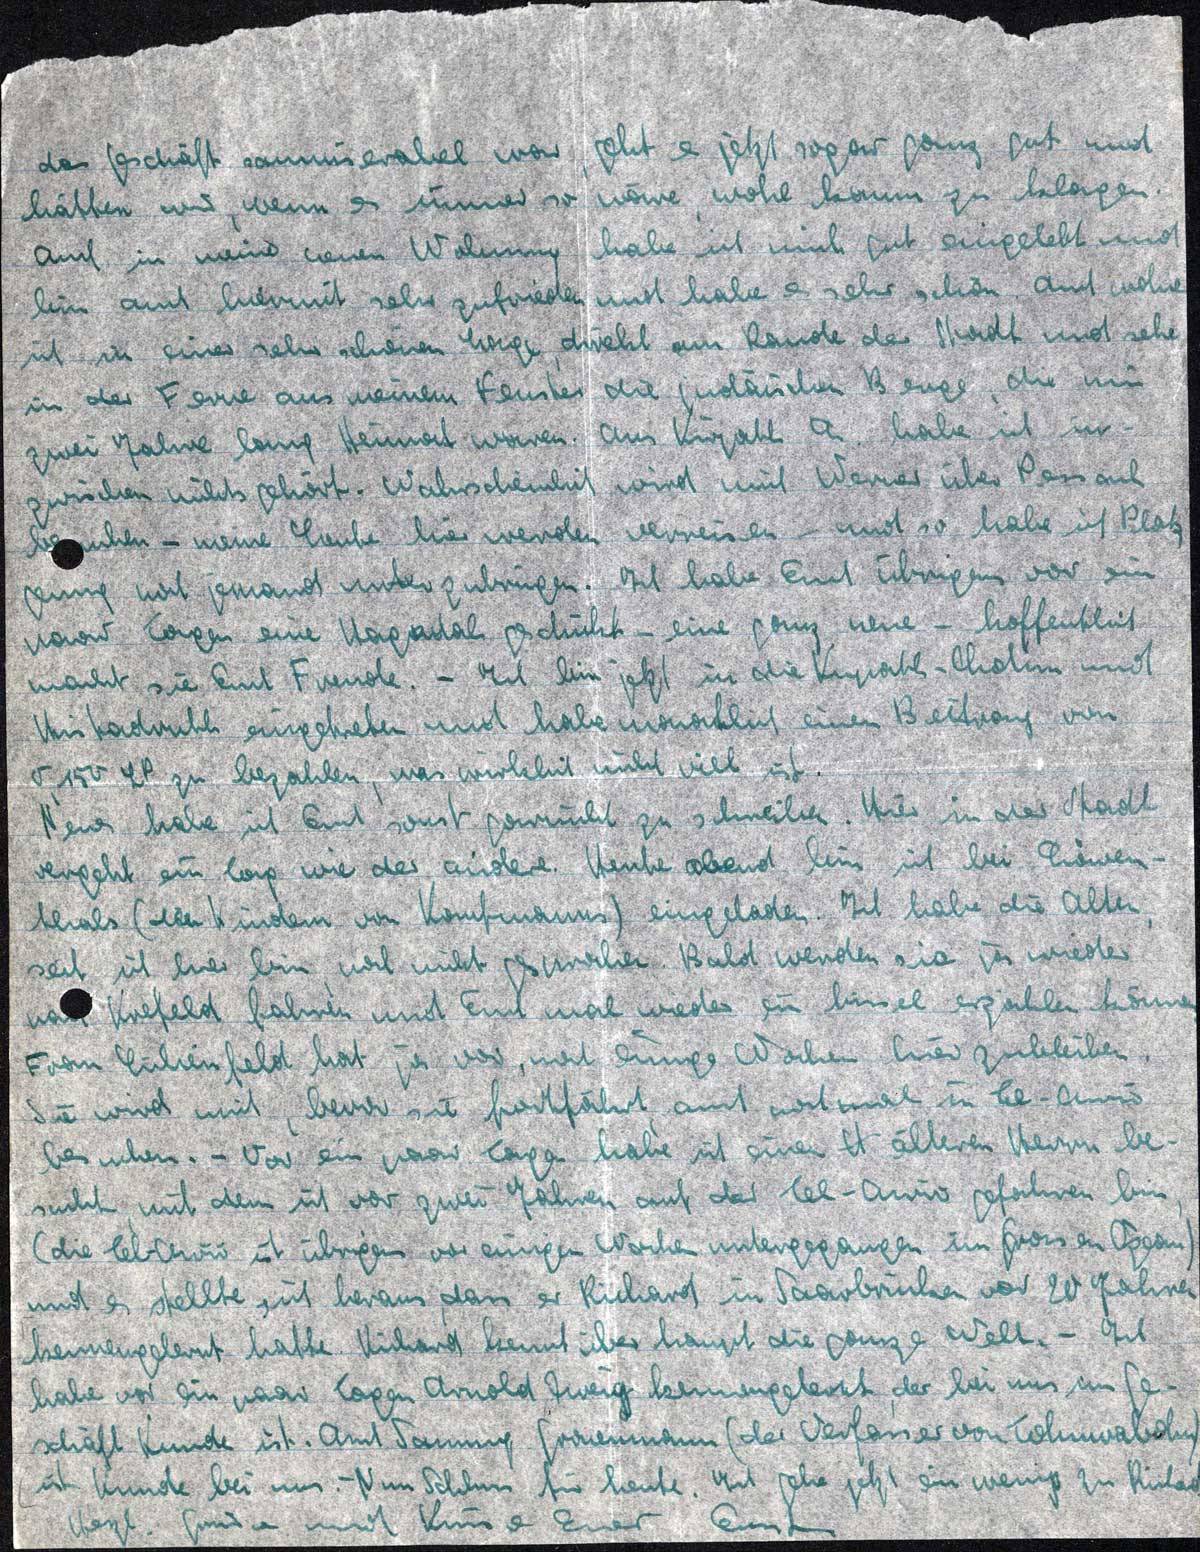 das Geschäft saumiserabel war, geht es jetzt sogar ganz gut und
hätten wir, wenn es immer so wäre, wohl kaum zu klagen.
Auch in meine neuen Wohnung habe ich mich gut eingelebt und
bin auch hiermit sehr zufrieden und habe es sehr schön. Auch wohne
ich in einer sehr schönen Lage, direkt am Rande der Stadt und sehe
in der Ferne aus meinem Fenster die judäischen Berge, die mir
zwei Jahre lang Heimat waren. Aus Kirjath A. habe ich in-
zwischen nichts gehört. Wahrscheinlich wird mich Werner über Pessach
besuchen – meine Leute hier werden verreisen – und so habe ich Platz
genug noch jemand unterzubringen. Ich habe Euch übrigens vor ein
paar Tagen eine Hagadah geschickt – eine ganz neue – hoffentlich
macht sie Euch Freude. – Ich bin jetzt in die Kupath-Cholim und
Histadruth eingetreten und habe monatlich einen Beitrag von
0,150 LP zu bezahlen, was wirklich nicht viel ist.
Neues habe ich Euch sonst garnicht zu schreiben. Hier in der Stadt
vergeht ein Tag wie der andere. Heute abend bin ich bei Löwen-
thals (den Kindern von Kaufmanns) eingeladen. Ich habe die Alten,
seit ich hier bin, noch nicht gesprochen. Bald werden sie ja wieder
nach Krefeld fahren und Euch mal wieder ein bissel erzählen können
Frau Lilienfeld hat ja vor, noch einige Wochen hier zu bleiben.
Sie wird mich, bevor sie fortfährt, auch nochmal in Tel-Awiw
besuchen. – Vor ein paar Tagen habe ich einen älteren Herrn be-
sucht, mit dem ich vor zwei Jahren auf der Tel-Awiw gefahren bin,
(die Tel-Awiw ist übrigens vor einigen Wochen untergegangen im Grossen Ozean)
und es stellte sich heraus, dass er Richard in Saarbrücken vor 20 Jahren
kennengelernt hatte. Richard kennt überhaupt die ganze Welt. – Ich
habe vor ein paar Tagen Arnold Zweig kennengelernt, der bei uns im Ge-
schäft Kunde ist. Auch Sammy Gronemann (der Verfasser von Tohuwabohu)
ist Kunde bei uns. – Nun Schluss für heute. Ich gehe jetzt ein wenig zu Richard
Herzl. Grüsse und Küsse Euer Ernst